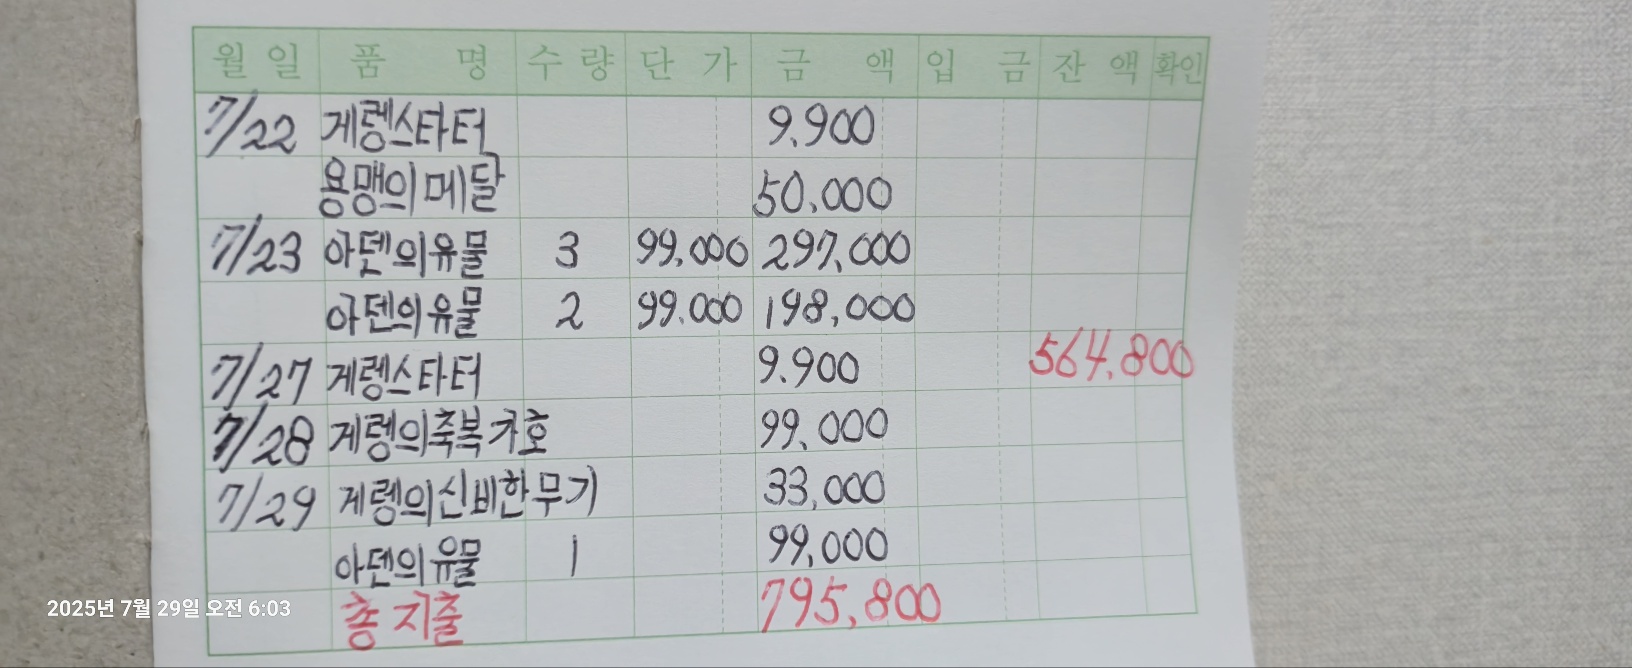 월 일 품 명 수 량 단 가 금 액 입 금 잔 액 확인
7/22 게렝스타터 9.900
용맹의 메달 50,000
7/23 아덴의유물 3 99,000 297,000
아덴의유물 2 99.000 198,000
7/27 게렝스타터 9.900 564,800
7/28 게렝의축복 가호 99,000
7/29 게렝의신비한 무기 33,000
아덴의 유물 1 99,000
총 지출 795,800
2025년 7월 29일 오전 6:03